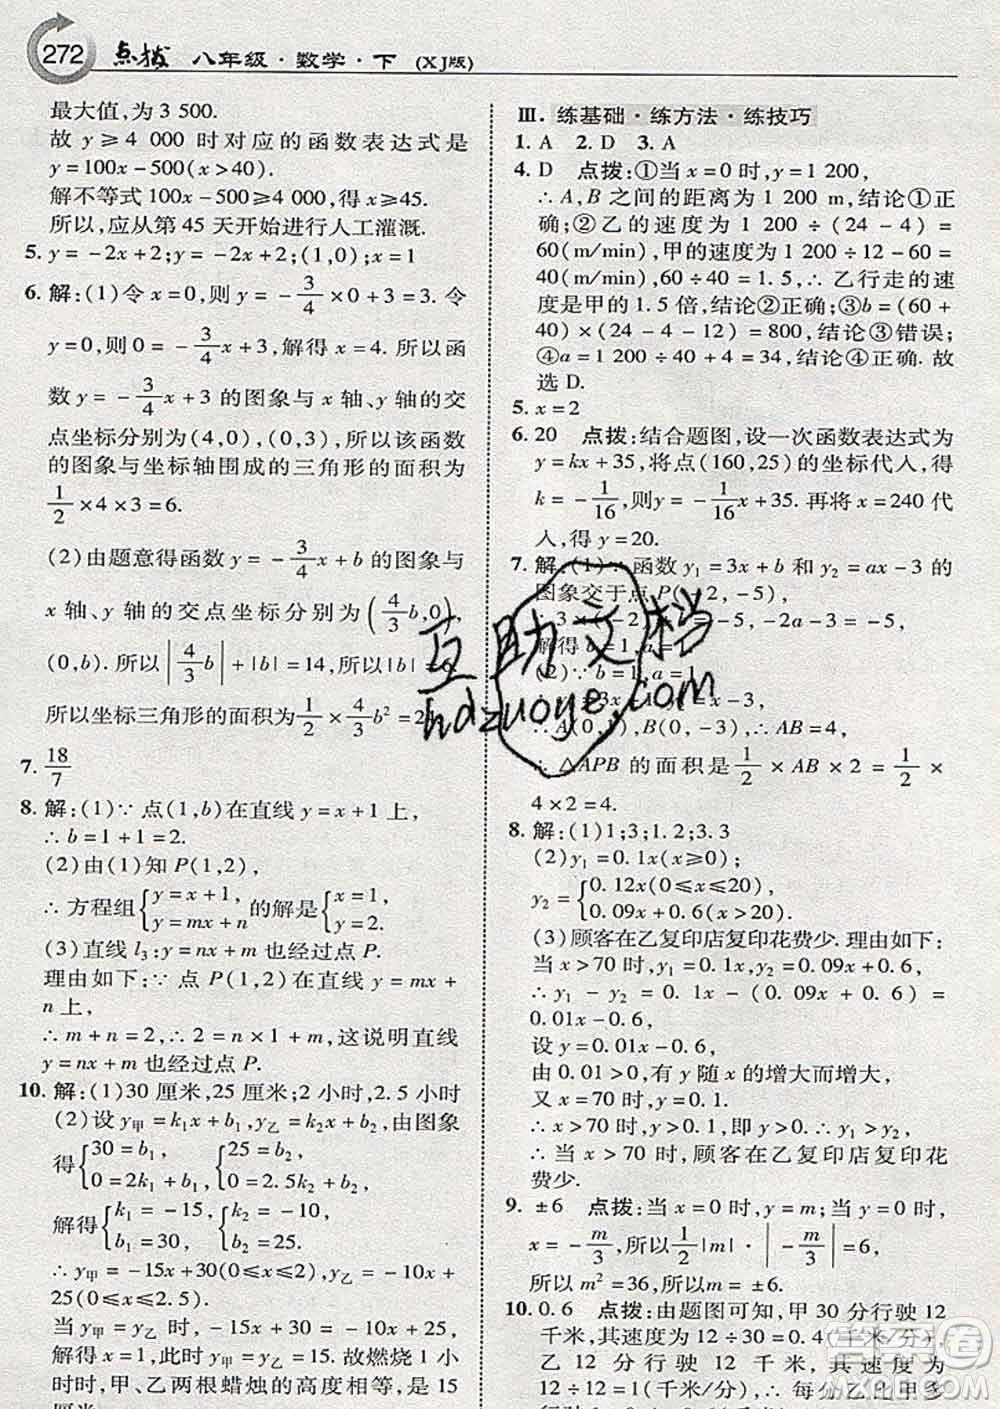 272 点拨 八年级·数学·下 (XJ版)
最大值,为 3 500.
故 y≥4 000 时对应的函数表达式是
y=100x-500(x>40).
解不等式 100x-500≥4 000,得 x≥45.
所以,应从第 45 天开始进行人工灌溉.
5. y=-2x+2;y=-2x+2;(1,0);x=1
6. 解:(1)令 x=0,则 y=-3/4×0+3=3. 令
y=0,则 0=-3/4x+3,解得 x=4. 所以函
数 y=-3/4x+3 的图象与 x 轴、y 轴的交
点坐标分别为(4,0),(0,3),所以该函数
的图象与坐标轴围成的三角形的面积为
1/2×4×3=6.
(2)由题意得函数 y=-3/4x+b 的图象与
x 轴、y 轴的交点坐标分别为(4/3b,0),
(0,b). 所以|4/3b|+|b|=14,所以|b|=6.
所以坐标三角形的面积为1/2×4/3b²=2
7. 18/7
8. 解:(1)∵点(1,b)在直线 y=x+1 上,
∴b=1+1=2.
(2)由(1)知 P(1,2),
∴方程组{y=x+1, y=mx+n 的解是{x=1, y=2.
(3)直线 l₃:y=nx+m 也经过点 P.
理由如下:∵点 P(1,2)在直线 y=mx+
n 上,
∴m+n=2,∴2=n×1+m,这说明直线
y=nx+m 也经过点 P.
10. 解:(1)30 厘米,25 厘米;2 小时,2.5 小时
(2)设 y甲=k₁x+b₁,y乙=k₂x+b₂,由图象
得{30=b₁, 0=2k₁+b₁, {25=b₂, 0=2.5k₂+b₂,
解得{k₁=-15, b₁=30, {k₂=-10, b₂=25.
∴y甲=-15x+30(0≤x≤2),y乙=-10x+
25(0≤x≤2.5).
当 y甲=y乙时,-15x+30=-10x+25,
解得 x=1,此时 y甲=y乙=15. 故燃烧 1 小
时时,甲、乙两根蜡烛的高度相等,是 15
厘米.
Ⅲ. 练基础·练方法·练技巧
1. A 2. D 3. A
4. D 点拨:①当 x=0 时,y=1 200,
∴A,B 之间的距离为 1 200 m,结论①正
确;②乙的速度为 1 200÷(24-4)=
60(m/min),甲的速度为 1 200÷12-60=
40(m/min),60÷40=1.5,∴乙行走的速
度是甲的 1.5 倍,结论②正确;③b=(60+
40)×(24-4-12)=800,结论③错误;
④a=1 200÷40+4=34,结论④正确. 故
选 D.
5. x=2
6. 20 点拨:结合题图,设一次函数表达式为
y=kx+35,将点(160,25)的坐标代入,得
k=-1/16,则 y=-1/16x+35. 再将 x=240 代
入,得 y=20.
7. 解:(1)∵函数 y₁=3x+b 和 y₂=ax-3 的
图象交于点 P(-2,-5),
∴3×(-2)+b=-5,-2a-3=-5,
解得 b=1,a=1.
(2)∵b=1,a=1,
x-3,
∴A(0,1),B(0,-3),∴AB=4,
∴△APB 的面积是1/2×AB×2=1/2×
4×2=4.
8. 解:(1)1;3;1.2;3.3
(2)y₁=0.1x(x≥0);
y₂={0.12x(0≤x≤20), 0.09x+0.6(x>20).
(3)顾客在乙复印店复印花费少. 理由如下:
当 x>70 时,y₁=0.1x,y₂=0.09x+0.6,
∴y₁-y₂=0.1x-(0.09x+0.6)=
0.01x-0.6,
设 y=0.01x-0.6,
由 0.01>0,得 y 随 x 的增大而增大,
又 x=70 时,y=0.1,
∴x>70 时,y>0.1,即 y>0,∴y₁>y₂,
∴当 x>70 时,顾客在乙复印店复印花
费少.
9. ±6 点拨:当 x=0 时,y=m;当 y=0 时,
x=-m/3,所以1/2|m|·|-m/3|=6,
所以 m²=36,所以 m=±6.
10. 0.6 点拨:由题图可知,甲 30 分行驶 12
千米,其速度为 12÷30=0.4(千米/分),
乙 12 分行驶 12 千米,其速度为
12÷12=1(千米/分),∴每分乙比甲多
行驶
互助文档
hdzuoye.com